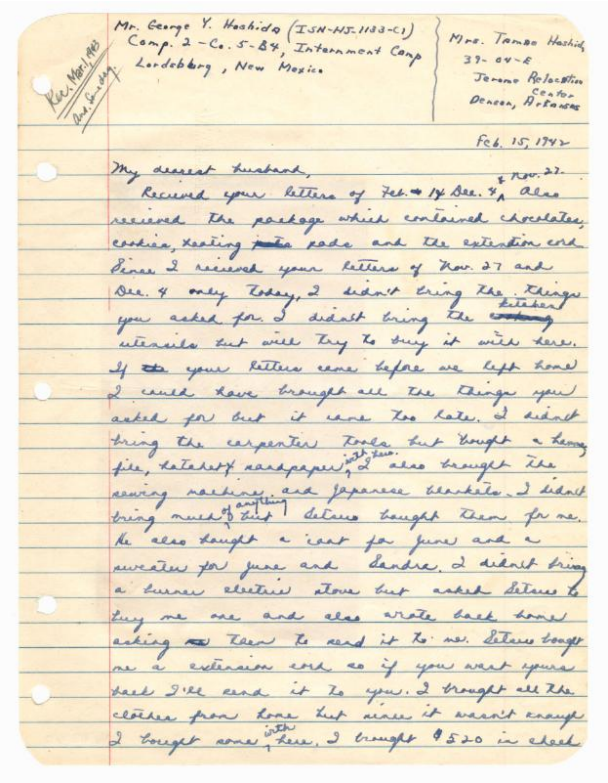 Mr. George Y. Hoshida (ISN-HJ-1133-CI)
Comp. 2 - Co. 5 - B4, Internment Camp
Lordsburg, New Mexico
Mrs. Tamae Hoshida
39-04-E
Jerome Relocation
Center
Denson, Arkansas
Rec. Mar. 1, 1943
Ans. Same day.
Feb. 15, 1942
My dearest husband,
Recieved your letters of Feb. 14 Dec. 4 & Nov. 27. Also
recieved the package which contained chocolates,
cookies, heating pads and the extention cord
Since I recieved your letters of Nov. 27 and
Dec. 4 only today, I didn't bring the things
you asked for. I didn't bring the kitchen
utensils but will try to buy it with here.
If your letters came before we left home
I could have brought all the things you
asked for but it came too late. I didnt
bring the carpenter tools but bought a
file, hatchet & sandpaper with here. I also brought the
sewing machine and Japanese blankets. I didnt
bring much of anything but Setsuo bought them for me.
He also bought a coat for June and a
sweater for June and Sandra. I didn't bring
a burner electric stove but asked Setsuo to
buy me one and also wrote back home
asking them to send it to me. Setsuo bought
me a extension cord so if you want yours
back I'll send it to you. I brought all the
clothes from home but since it wasn't enough
I bought some with here. I brought $520 in check